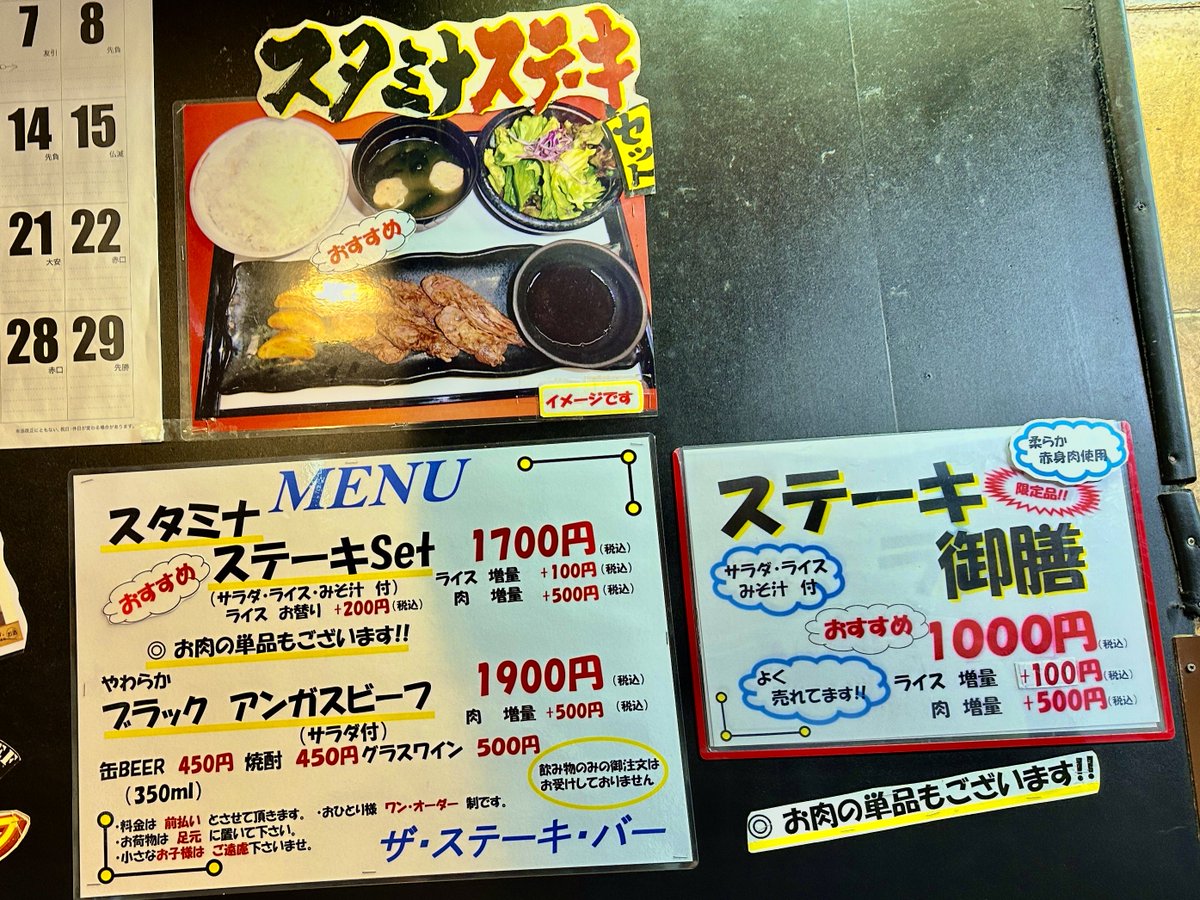 7 8
友引 先負
14 15
先負 仏滅
21 22
大安 赤口
28 29
赤口 先勝
スタミナステーキ
セット
おすすめ
イメージです
MENU
スタミナ
ステーキSet 1700円(税込)
おすすめ
(サラダ・ライス・みそ汁 付)
ライス お替り +200円(税込)
ライス 増量 +100円(税込)
肉 増量 +500円(税込)
◎ お肉の単品もございます!!
やわらか
ブラック アンガスビーフ 1900円(税込)
(サラダ付)
肉 増量 +500円(税込)
缶BEER 450円 焼酎 450円 グラスワイン 500円
(350ml)
飲み物のみの御注文は
お受けしておりません
・料金は 前払い とさせて頂きます。 ・おひとり様 ワン・オーダー 制です。
・お荷物は 足元 に置いて下さい。
・小さなお子様は ご遠慮下さいませ。
ザ・ステーキ・バー
柔らか
赤身肉使用
限定品!!
ステーキ
御膳
サラダ・ライス
みそ汁 付
おすすめ
1000円(税込)
よく
売れてます!!
ライス 増量 +100円(税込)
肉 増量 +500円(税込)
◎ お肉の単品もございます!!